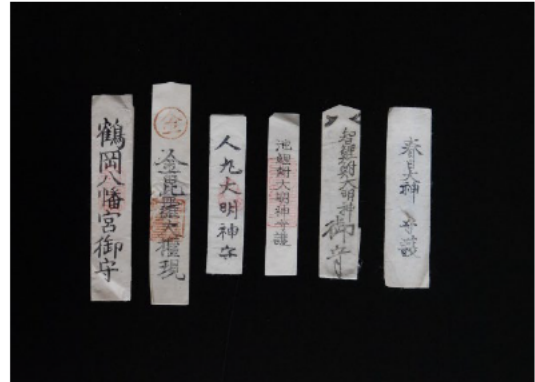 鶴岡八幡宮御守
金
金毘羅大権現
人九大明神守
池鯉鮒大明神守護
智鯉鮒大明神
御守
春日大神 守護